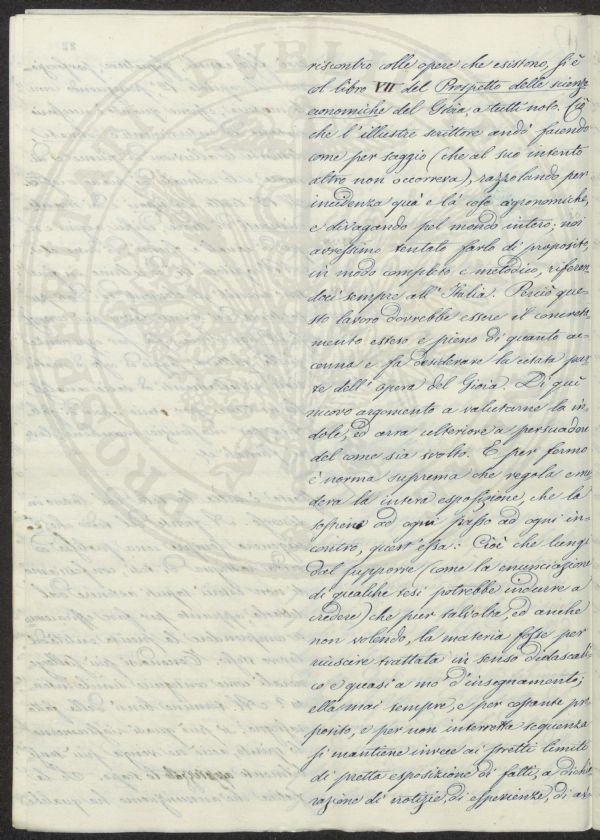 riscontro colle opere che esistono, si è
col libro VII del Prospetto delle scienze
economiche del Gioia, a tutti noto. Ciò
che l'illustre scrittore andò facendo
come per saggio (che al suo intento
altro non occorreva), razzolando per
incidenza quà e là cose agronomiche,
e divagando pel mondo intero; noi
avressimo tentato farlo di proposito,
in modo completo e metodico, riferen
doci sempre all'Italia. Perciò que-
sto lavoro dovrebbe essere il concreta
mento esteso e pieno di quanto ac-
cenna e fa desiderare la citata par
te dell'opera del Gioia. Di qui
nuovo argomento a valutarne la in-
dole, ed arra ulteriore a persuadere
del come sia svolto. E per fermo
è norma suprema che regola e mo
dera la intera esposizione, che la
sostiene ad ogni passo ad ogni in-
contro, quest'essa: Cioè che lungi
dal supporre (come la enunciazione
di qualche tesi potrebbe indurre a
credere) che pur talvolta, ed anche
non volendo, la materia fosse per
riuscire trattata in senso didascali
co e quasi a mo' d'insegnamento;
ella mai sempre, e per costante pro
posito, e per non interrotta sequenza
si mantiene invece ai stretti limiti
di pretta esposizione di fatti, a dichia
razione di notizie, di esperienze, di av